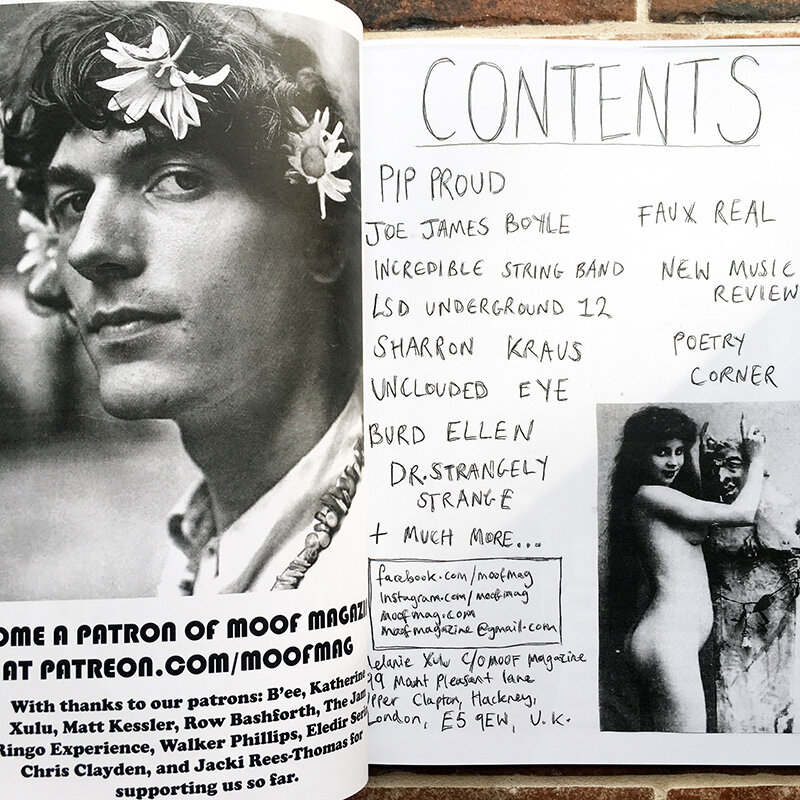 OME A PATRON OF MOOF MAGAZI
AT PATREON.COM/MOOFMAG
With thanks to our patrons: B'ee, Katherine
Xulu, Matt Kessler, Row Bashforth, The Jam
Ringo Experience, Walker Phillips, Eledir
Chris Clayden, and Jacki Rees-Thomas for
supporting us so far.
CONTENTS
PIP PROUD
JOE JAMES BOYLE
INCREDIBLE STRING BAND
LSD UNDERGROUND 12
SHARRON KRAUS
UNCLOUDED EYE
BURD ELLEN
DR. STRANGELY
STRANGE
+ MUCH MORE...
FAUX REAL
NEW MUSIC
REVIEW
POETRY
CORNER
facebook.com/moofmag
instagram.com/moofmag
moofmag.com
moofmagazine@gmail.com
elanie Xulu C/O MOOF Magazine
9 Mount Pleasant Lane
pper Clapton, Hackney,
London, E5 9EW, U.K.